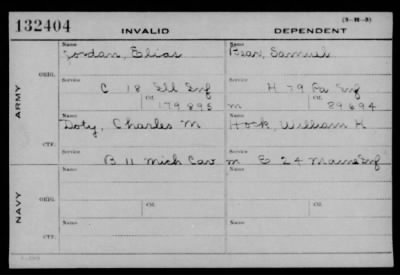 (3-H-3)
132404 INVALID DEPENDENT
Name Name
Jordan, Elias Bear, Samuel
ORIG.
Service Service
C 18 Ill Inf H 79 Pa Inf
Ctf. Ctf.
179895 m 89694
ARMY
Name Name
Doty, Charles M Hock, William H
CTF.
Service Service
B 11 Mich Cav m E 24 Maine Inf
Name Name
NAVY
ORIG.
Service Ctf. Service Ctf.
Name Name
CTF.
Service Service